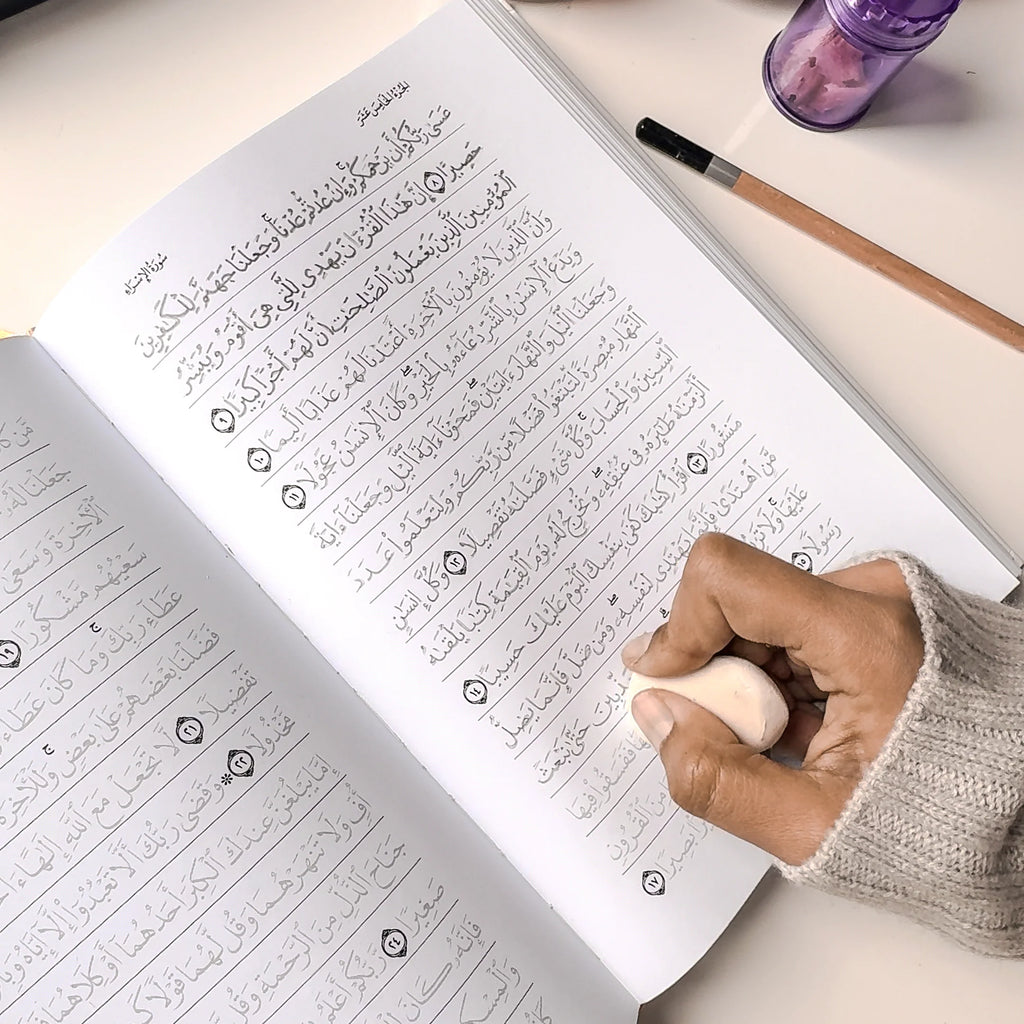 الجزء الخامس عشر
سورة الإسراء
عَسَىٰ رَبُّكُمْ أَن يَرْحَمَكُمْ وَإِنْ عُدتُّمْ عُدْنَا وَجَعَلْنَا جَهَنَّمَ لِلْكَٰفِرِينَ
حَصِيرًا ٨ إِنَّ هَٰذَا ٱلْقُرْءَانَ يَهْدِى لِلَّتِى هِىَ أَقْوَمُ وَيُبَشِّرُ
ٱلْمُؤْمِنِينَ ٱلَّذِينَ يَعْمَلُونَ ٱلصَّٰلِحَٰتِ أَنَّ لَهُمْ أَجْرًا كَبِيرًا ٩
وَأَنَّ ٱلَّذِينَ لَا يُؤْمِنُونَ بِٱلْءَاخِرَةِ أَعْتَدْنَا لَهُمْ عَذَابًا أَلِيمًا ١٠
وَيَدْعُ ٱلْإِنسَٰنُ بِٱلشَّرِّ دُعَآءَهُۥ بِٱلْخَيْرِ وَكَانَ ٱلْإِنسَٰنُ عَجُولًا ١١
وَجَعَلْنَا ٱلَّيْلَ وَٱلنَّهَارَ ءَايَتَيْنِ فَمَحَوْنَآ ءَايَةَ ٱلَّيْلِ وَجَعَلْنَآ ءَايَةَ
ٱلنَّهَارِ مُبْصِرَةً لِّتَبْتَغُوا۟ فَضْلًا مِّن رَّبِّكُمْ وَلِتَعْلَمُوا۟ عَدَدَ
ٱلسِّنِينَ وَٱلْحِسَابَ وَكُلَّ شَىْءٍ فَصَّلْنَٰهُ تَفْصِيلًا ١٢ وَكُلَّ إِنسَٰنٍ
أَلْزَمْنَٰهُ طَٰٓئِرَهُۥ فِى عُنُقِهِۦ وَنُخْرِجُ لَهُۥ يَوْمَ ٱلْقِيَٰمَةِ كِتَٰبًا يَلْقَىٰهُ
مَنشُورًا ١٣ ٱقْرَأْ كِتَٰبَكَ كَفَىٰ بِنَفْسِكَ ٱلْيَوْمَ عَلَيْكَ حَسِيبًا ١٤
مَّنِ ٱهْتَدَىٰ فَإِنَّمَا يَهْتَدِى لِنَفْسِهِۦ وَمَن ضَلَّ فَإِنَّمَا يَضِلُّ
عَلَيْهَا وَلَا تَزِرُ حَتَّىٰ نَبْعَثَ
رَسُولًا ١٥ فَفَسَقُوا۟ فِيهَا
مِنَ ٱلْقُرُونِ
بَصِيرًا ١٧
مَّن كَانَ
جَعَلْنَا لَهُۥ
ٱلْءَاخِرَةَ وَسَعَىٰ
سَعْيُهُم مَّشْكُورًا ١٩
عَطَآءِ رَبِّكَ وَمَا كَانَ عَطَآءُ
فَضَّلْنَا بَعْضَهُمْ عَلَىٰ بَعْضٍ وَلَلْءَاخِرَةُ
تَفْضِيلًا ٢١ لَّا تَجْعَلْ مَعَ ٱللَّهِ إِلَٰهًا ءَاخَرَ
مَّخْذُولًا ٢٢ * وَقَضَىٰ رَبُّكَ أَلَّا تَعْبُدُوٓا۟ إِلَّآ إِيَّاهُ
إِمَّا يَبْلُغَنَّ عِندَكَ ٱلْكِبَرَ أَحَدُهُمَآ أَوْ كِلَاهُمَا
أُفٍّ وَلَا تَنْهَرْهُمَا وَقُل لَّهُمَا قَوْلًا
جَنَاحَ ٱلذُّلِّ مِنَ ٱلرَّحْمَةِ وَقُل
صَغِيرًا ٢٤ رَّبُّكُمْ أَعْلَمُ
فَإِنَّهُۥ كَانَ
وَٱلْمِسْكِينَ